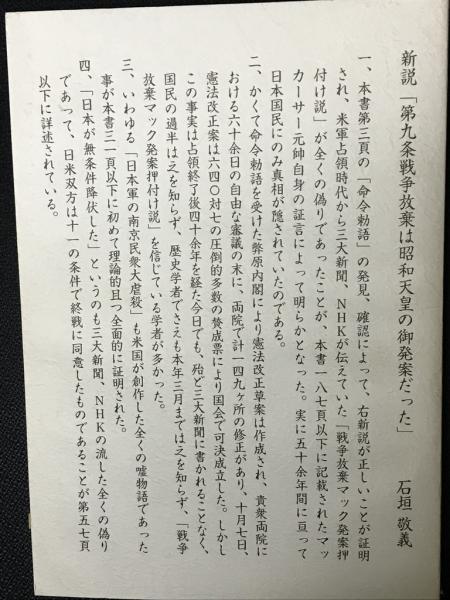 新説「第九条戦争放棄は昭和天皇の御発案だった」
石垣 敬義
一、本書第三頁の「命令勅語」の発見、確認によって、右新説が正しいことが証明
され、米軍占領時代から三大新聞、NHKが伝えていた「戦争放棄マック発案押
付け説」が全くの偽りであったことが、本書一八七頁以下に記載されたマッ
カーサー元帥自身の証言によって明らかとなった。実に五十余年間に亘って
日本国民にのみ真相が隠されていたのである。
二、かくて命令勅語を受けた弊原内閣により憲法改正草案は作成され、貴衆両院に
おける六十余日の自由な審議の末に、両院で計一四九ヶ所の修正があり、十月七日、
憲法改正案は六四〇対七の圧倒的多数の賛成票により国会で可決成立した。しかし
この事実は占領終了後四十余年を経た今日でも、殆ど三大新聞に書かれることなく、
国民の過半は之を知らず、歴史学者でさえも本年三月までは之を知らず、「戦争
放棄マック発案押付け説」を信じている学者が多かった。
三、いわゆる「日本軍の南京民衆大虐殺」も米国が創作した全くの嘘物語であった
事が本書三一頁以下に初めて理論的且つ全面的に証明された。
四、「日本が無条件降伏した」というのも三大新聞、NHKの流した全くの偽り
であって、日米双方は十一の条件で終戦に同意したものであることが第五七頁
以下に詳述されている。